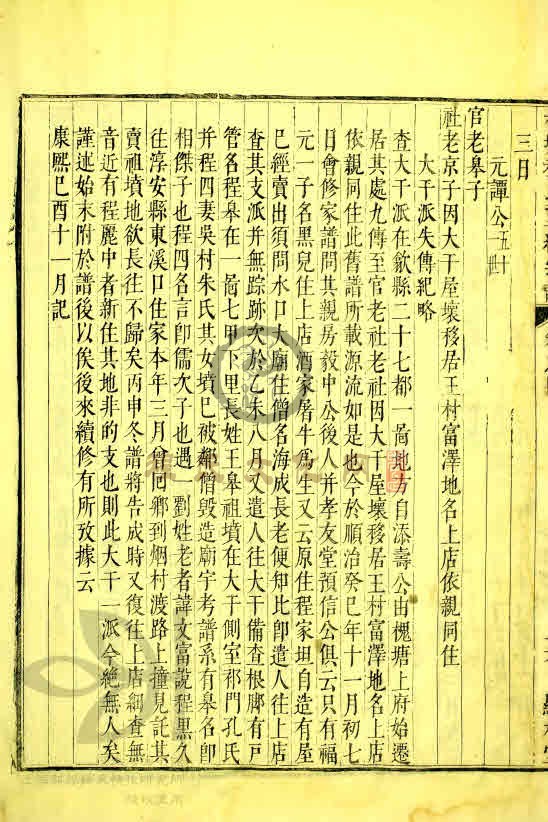 三曰
元譚公五世
官老皋子
社老京子因大干屋壞移居王村富澤地名上店依親同住
大干派失傳紀略
查大干派在歙縣二十七都一啚地方自添壽公由槐塘上府始遷
居其處九傳至官老社老社因大干屋壞移居王村富澤地名上店
依親同住此舊譜所載源流如是也今於順治癸巳年十一月初七
日會修家譜問其親房毅中公後人并孝友堂預信公俱云只有福
元一子名黑兒住上店酒家屠牛爲生又云原住程家坦自造有屋
已經賣出須問水口大廟住僧名海成長老便知比卽遣人往上店
查其支派并無踪跡次於乙未八月又遣人往大干備查根脚有戶
管名程皋在一啚七甲下里長姓王皋祖墳在大干側室祁門孔氏
并程四妻吳村朱氏其女墳已被鄰僧毀造廟宇考譜系有皋名卽
相傑子也程四名言卽儒次子也遇一劉姓老者諱文富說程黑久
往淳安縣東溪口住家本年三月曾回鄉到烟村渡路上撞見託其
賣祖墳地欲長往不歸矣丙申冬譜將告成時又復往上店細查無
音近有程麗中者新住其地非的支也則此大干一派今絕無人矣
謹述始末附於譜後以俟後來續修有所攷據云
康熙己酉十一月記